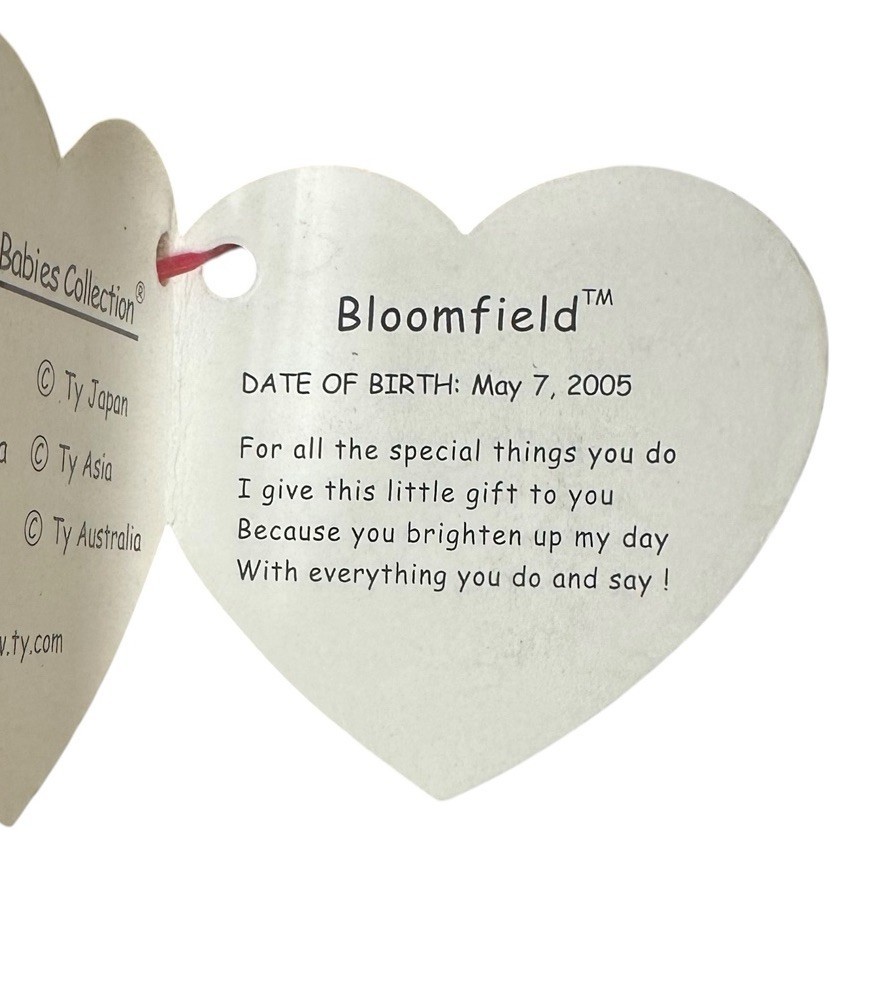 Babies Collection®
© Ty Japan
a © Ty Asia
© Ty Australia
.ty.com
Bloomfield™
DATE OF BIRTH: May 7, 2005
For all the special things you do
I give this little gift to you
Because you brighten up my day
With everything you do and say !